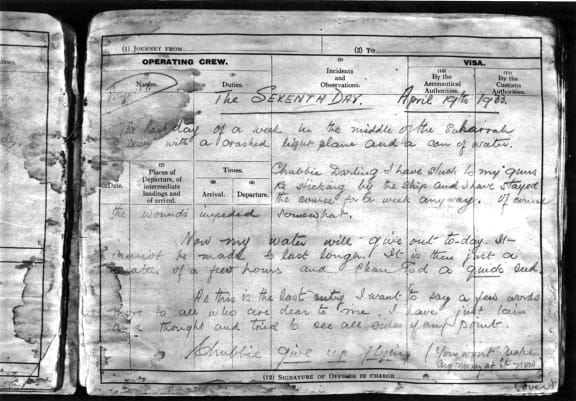 (1) JOURNEY FROM
(2) TO
OPERATING CREW.
VISA.
Names.
(4)
Duties.
(8)
Incidents
and
Observations.
(10)
By the
Aeronautical
Authorities.
(11)
By the
Customs
Authorities.
The SEVENTH DAY. April 19th 1933
The last day of a week in the middle of the Saharrah
with a crashed light plane and a can of water.
Date.
(2)
Places of
Departure, of
intermediate
landings and
of arrival.
Times.
(5)
Arrival.
(6)
Departure.
Chubbie Darling I have stuck to my guns
re sticking by the ship and I have stayed
the course for a week anyway. Of course
the wounds impeded somewhat.
Now my water will give out to-day. It
cannot be made to last longer. It is then just a
matter of a few hours and please God a quick end.
As this is the last entry I want to say a few words
more to all who are dear to me. I have just lain
and thought and tried to see all sides of any point.
Chubbie give up flying (You wont make
any money at it now
(12) SIGNATURE OF OFFICER IN CHARGE
(over)